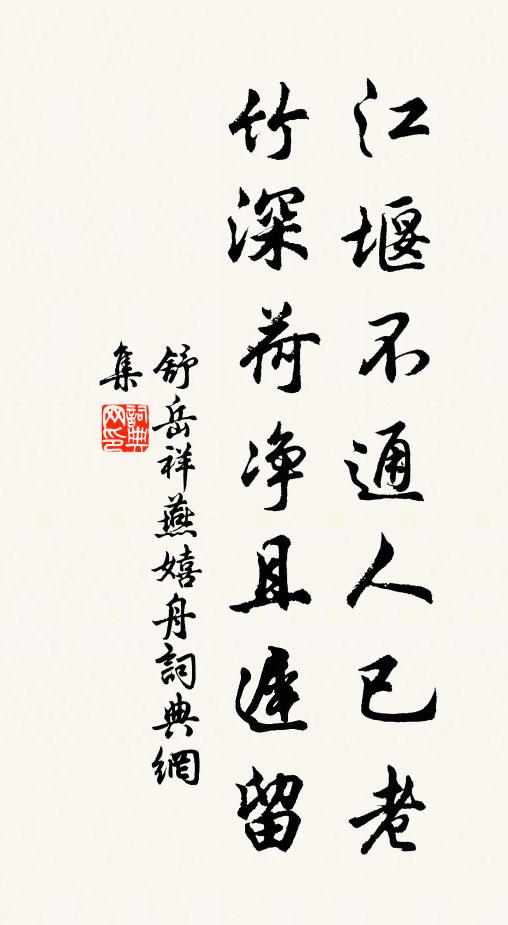 江堰不通人已老
竹深荷净且遲留
舒岳祥燕嬉舟詞典網
集
詞典
网印